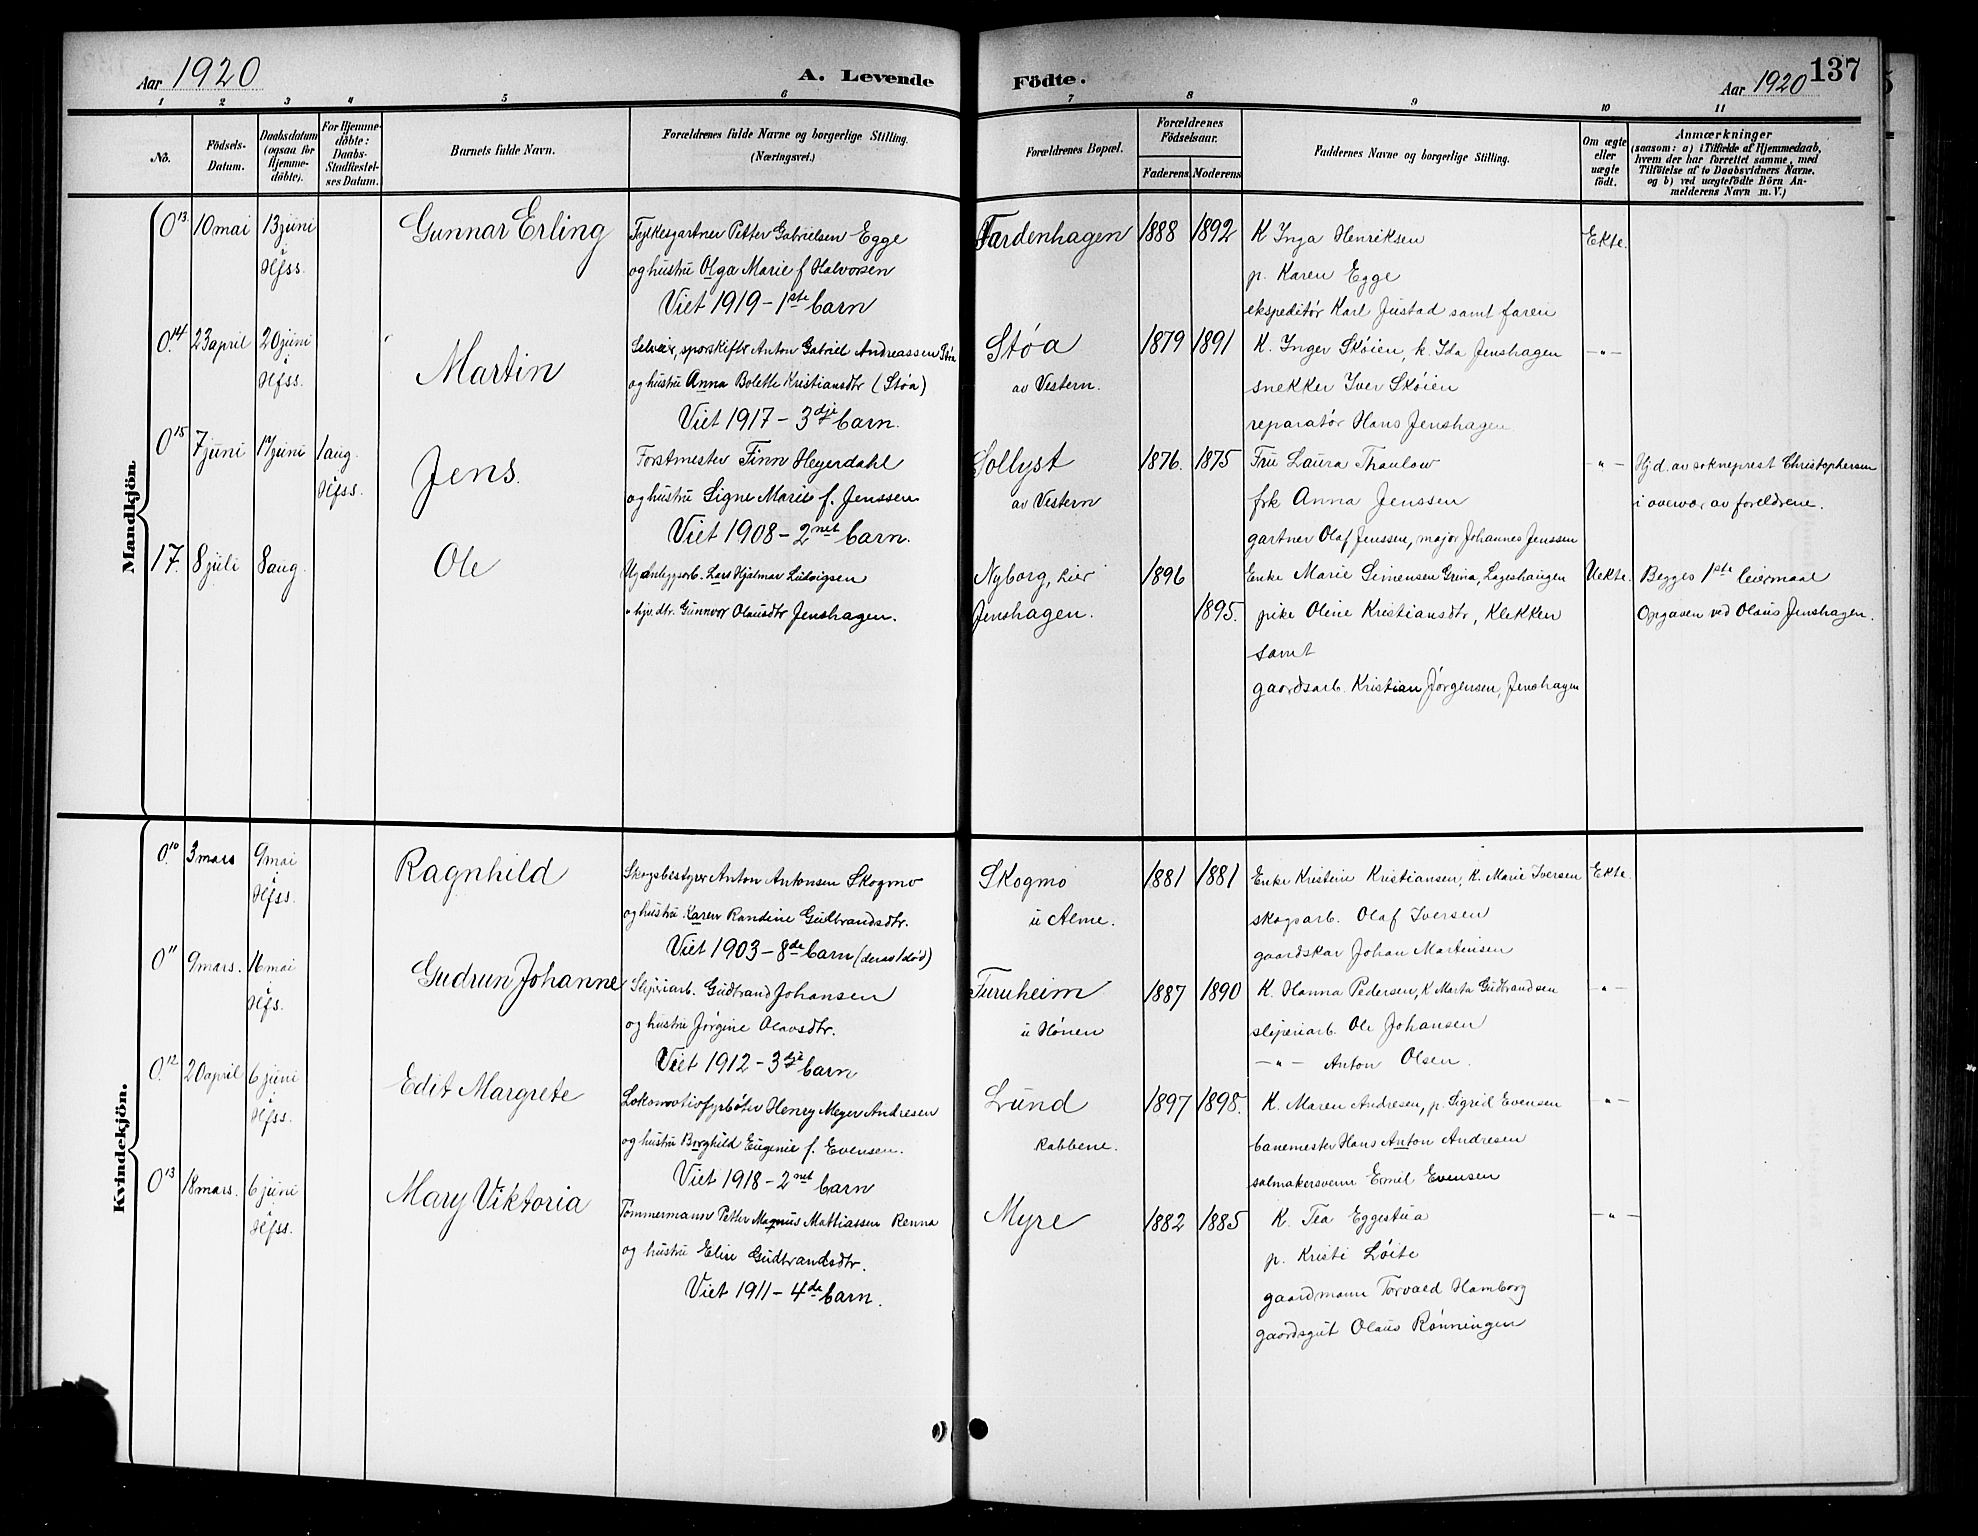 Aar 1920
A. Levende
Födte.
Aar 1920
137
1 2 3 4 5 6 7 8 9 10 11
No.
Födsels-Datum.
Daabsdatum (ogsaa for Hjemme-döbte).
For Hjemme-döbte: Daabs-Stadfæstel-ses Datum.
Barnets fulde Navn.
Forældrenes fulde Navne og borgerlige Stilling.
(Næringsvei.)
Forældrenes Bopæl.
Forældrenes Födselsaar.
Faderens Moderens
Faddernes Navne og borgerlige Stilling.
Om ægte eller uægte födt.
Anmærkninger
(saasom: a) i Tilfælde af Hjemmedaab,
hvem der har forrettet samme, med
Tilföielse af to Daabsvidners Navne.
og b) ved uægtefödte Börn An-
melderens Navn m. V.)
Mandkjön
0 13. 10 mai 13 juni i Hfss. Gunnar Erling
Fylkesgartner Petter Gabrielsen Egge
og hustru Olga Marie f Halvorsen
Viet 1919 - 1ste barn
Tardenhagen 1888 1892
K Inga Henriksen
p. Karen Egge
ekspeditør Karl Justad samt faren
Ekte.
0 14. 23 april 20 juni i Hfss. Martin
Selveier, sporskifter Anton Gabriel Andreassen Støa
og hustru Anna Bolette Kristiansdtr (Støa)
Viet 1917 - 3dje barn.
Støa
av Vestern.
1879 1891
K. Inger Skøien, k. Ida Jenshagen
snekker Iver Skøien
reparatør Hans Jenshagen
- " -
0 15 7 juni 17 juni 1 aug. i Hfss. Jens.
Forstmester Finn Heyerdahl
og hustru Signe Marie f. Jenssen
Viet 1908 - 2net barn.
Sollyst
av Vestern
1876. 1875
Fru Laura Thaulow
frk Anna Jenssen
gartner Olaf Jenssen, major Johannes Jenssen
- " -
Hjd. av sokneprest Christophersen
i overvær av foreldrene.
17. 8 juli 8 aug. Ole
Ug anlegsarb. Lars Hjalmar Ludvigsen
" hjv. dtr. Gunnvor Olausdtr Jenshagen.
Nyborg, Lier
Jenshagen.
1896
1895.
Enke Marie Simensen Grina, Lageshaugen
pike Oline Kristiansdtr, Klekken
samt
gaardsarb. Kristian Jørgensen, Jenshagen
Uekte.
Begges 1ste leiermaal
Opgaven ved Olaus Jenshagen.
Kvindekjön.
0 10 3 mars 9 mai i Hfss. Ragnhild
Skogsbestyrer Anton Antonsen Skogmo
og hustru Karen Randine Gudbrandsdtr.
Viet 1903 - 8de barn (derav 1 død)
Skogmo
u Alme.
1881 1881
Enke Kristine Kristiansen, K. Marie Iversen
skogsarb. Olaf Iversen
gaardskar Johan Martinsen
Ekte.
0 11 9 mars. 16 mai i Hfs. Gudrun Johanne
Sliperiarb. Gudbrand Johansen
og hustru Jørgine Olavsdtr.
Viet 1912 - 3dje barn
Furuheim
u Hønen
1887 1890
K. Hanna Pedersen, K Marta Gudbrandsen
sliperiarb. Ole Johansen
- " - Anton Olsen.
- " -
0 12 20 april 6 juni i Hfss. Edit Margrete
Lokomotivfyrbøter Henry Meyer Andresen
og hustru Borghild Eugenie f. Evensen.
Viet 1918 - 2net barn
Lund
Rabbene.
1897 1898.
K. Maren Andresen, p. Sigrid Evensen
banemester Hans Anton Andresen
salmakersvenn Emil Evensen
- " -
0 13 18 mars. 6 juni i Hfss. Mary Viktoria
Tømmermann Petter Magnus Mattiassen Renna
og hustru Elise Gudbrandsdtr.
Viet 1911 - 4de barn.
Myre 1882 1885
K. Tea Eggestua
p. Kristi Løite
gaardmann Torvald Hamborg
gaardsgut Olaus Rønningen
- " -